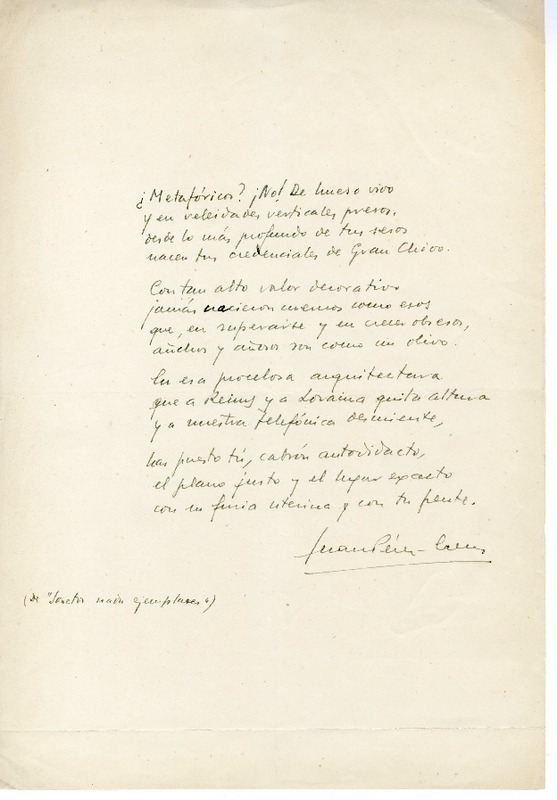 ¿Metafóricos? ¡No! De hueso vivo
y en veleidades verticales presos,
desde lo más profundo de tus sesos
nacen tus credenciales de Gran Chivo.
Con tan alto valor decorativo
jamás nacieron cuernos como esos
que, en superarse y en crecer obsesos,
anchos y añosos son como un olivo.
En esa procelosa arquitectura
que a Reims y a Loraina quita altura
y a nuestra Telefónica desmiente,
has puesto tú, cabrón autodidacto,
el plano justo y el lugar exacto
con su furia uterina y con tu frente.
Juan Pérez-Creus
(De "Sonetos nada ejemplares")